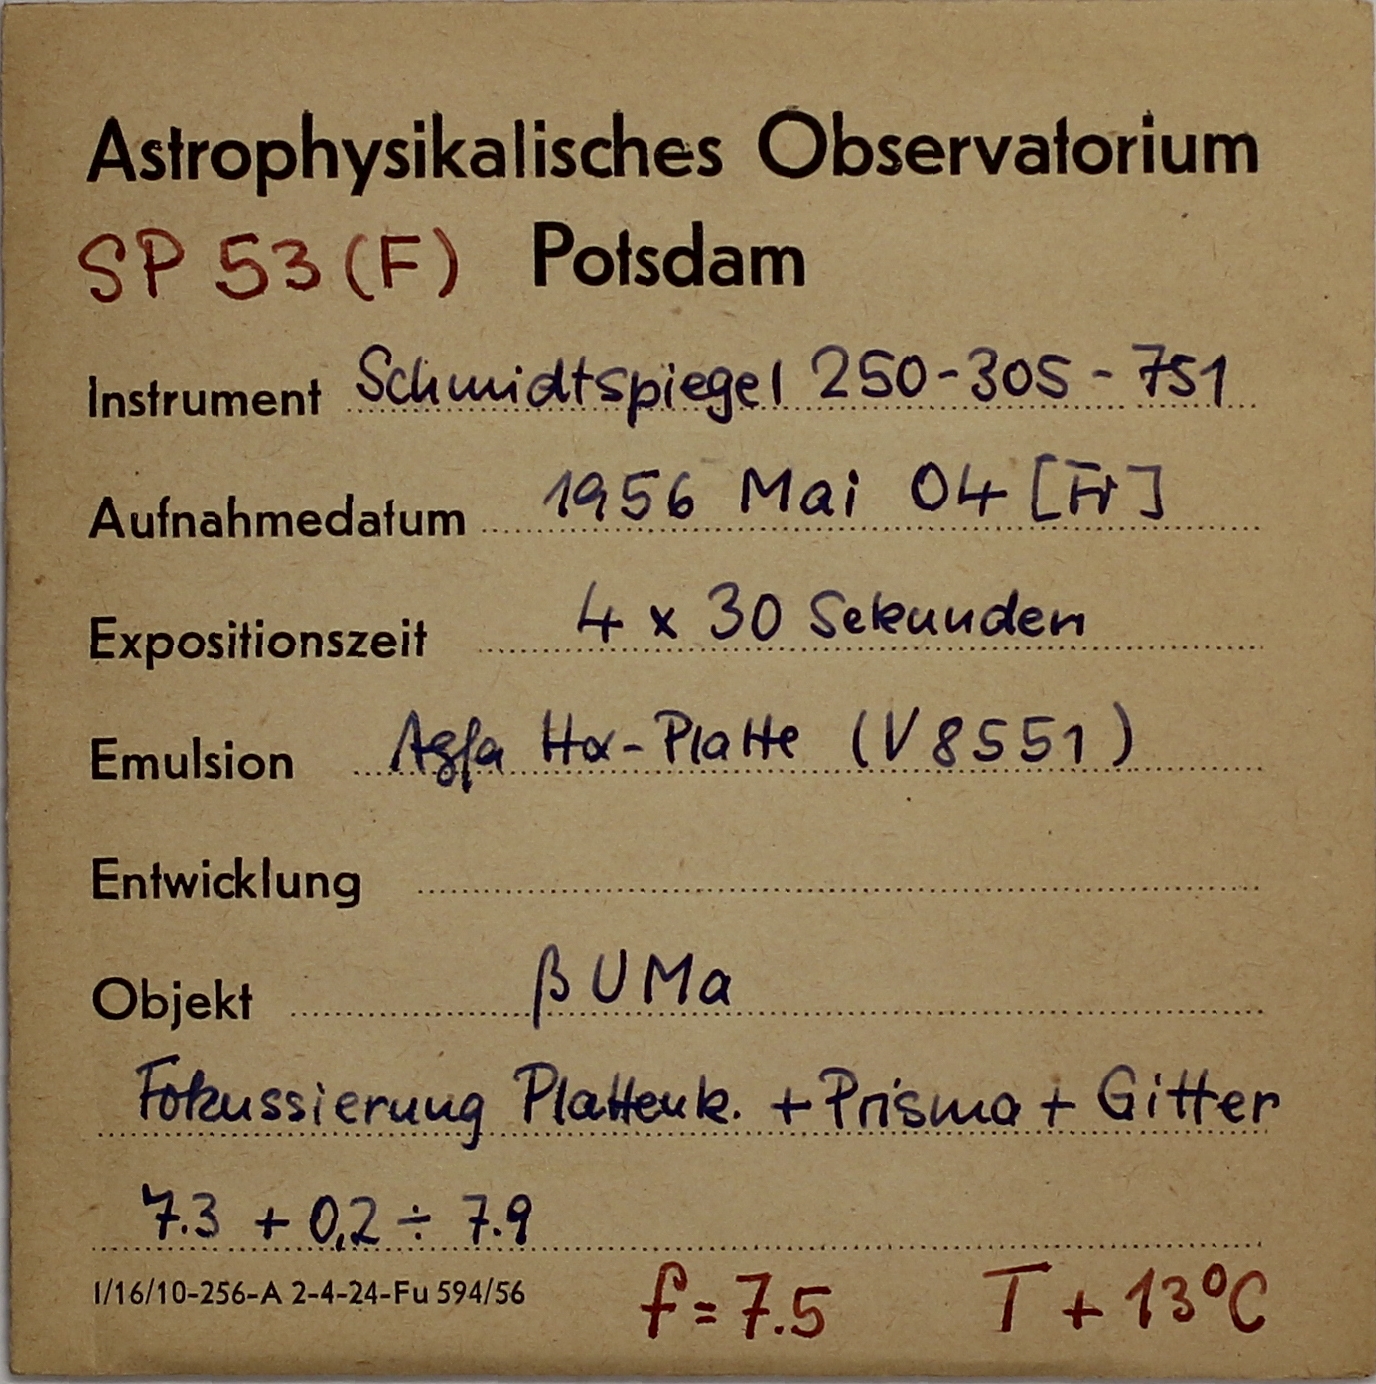 Astrophysikalisches Observatorium
SP 53 (F) Potsdam
Instrument Schmidtspiegel 250-305-751
Aufnahmedatum 1956 Mai 04 [Fr]
Expositionszeit 4 x 30 Sekunden
Emulsion Agfa Hα-Platte (V8551)
Entwicklung
Objekt β UMa
Fokussierung Plattenk. + Prisma + Gitter
7.3 + 0,2 ÷ 7.9
I/16/10-256-A 2-4-24-Fu 594/56 f = 7.5 T + 13°C